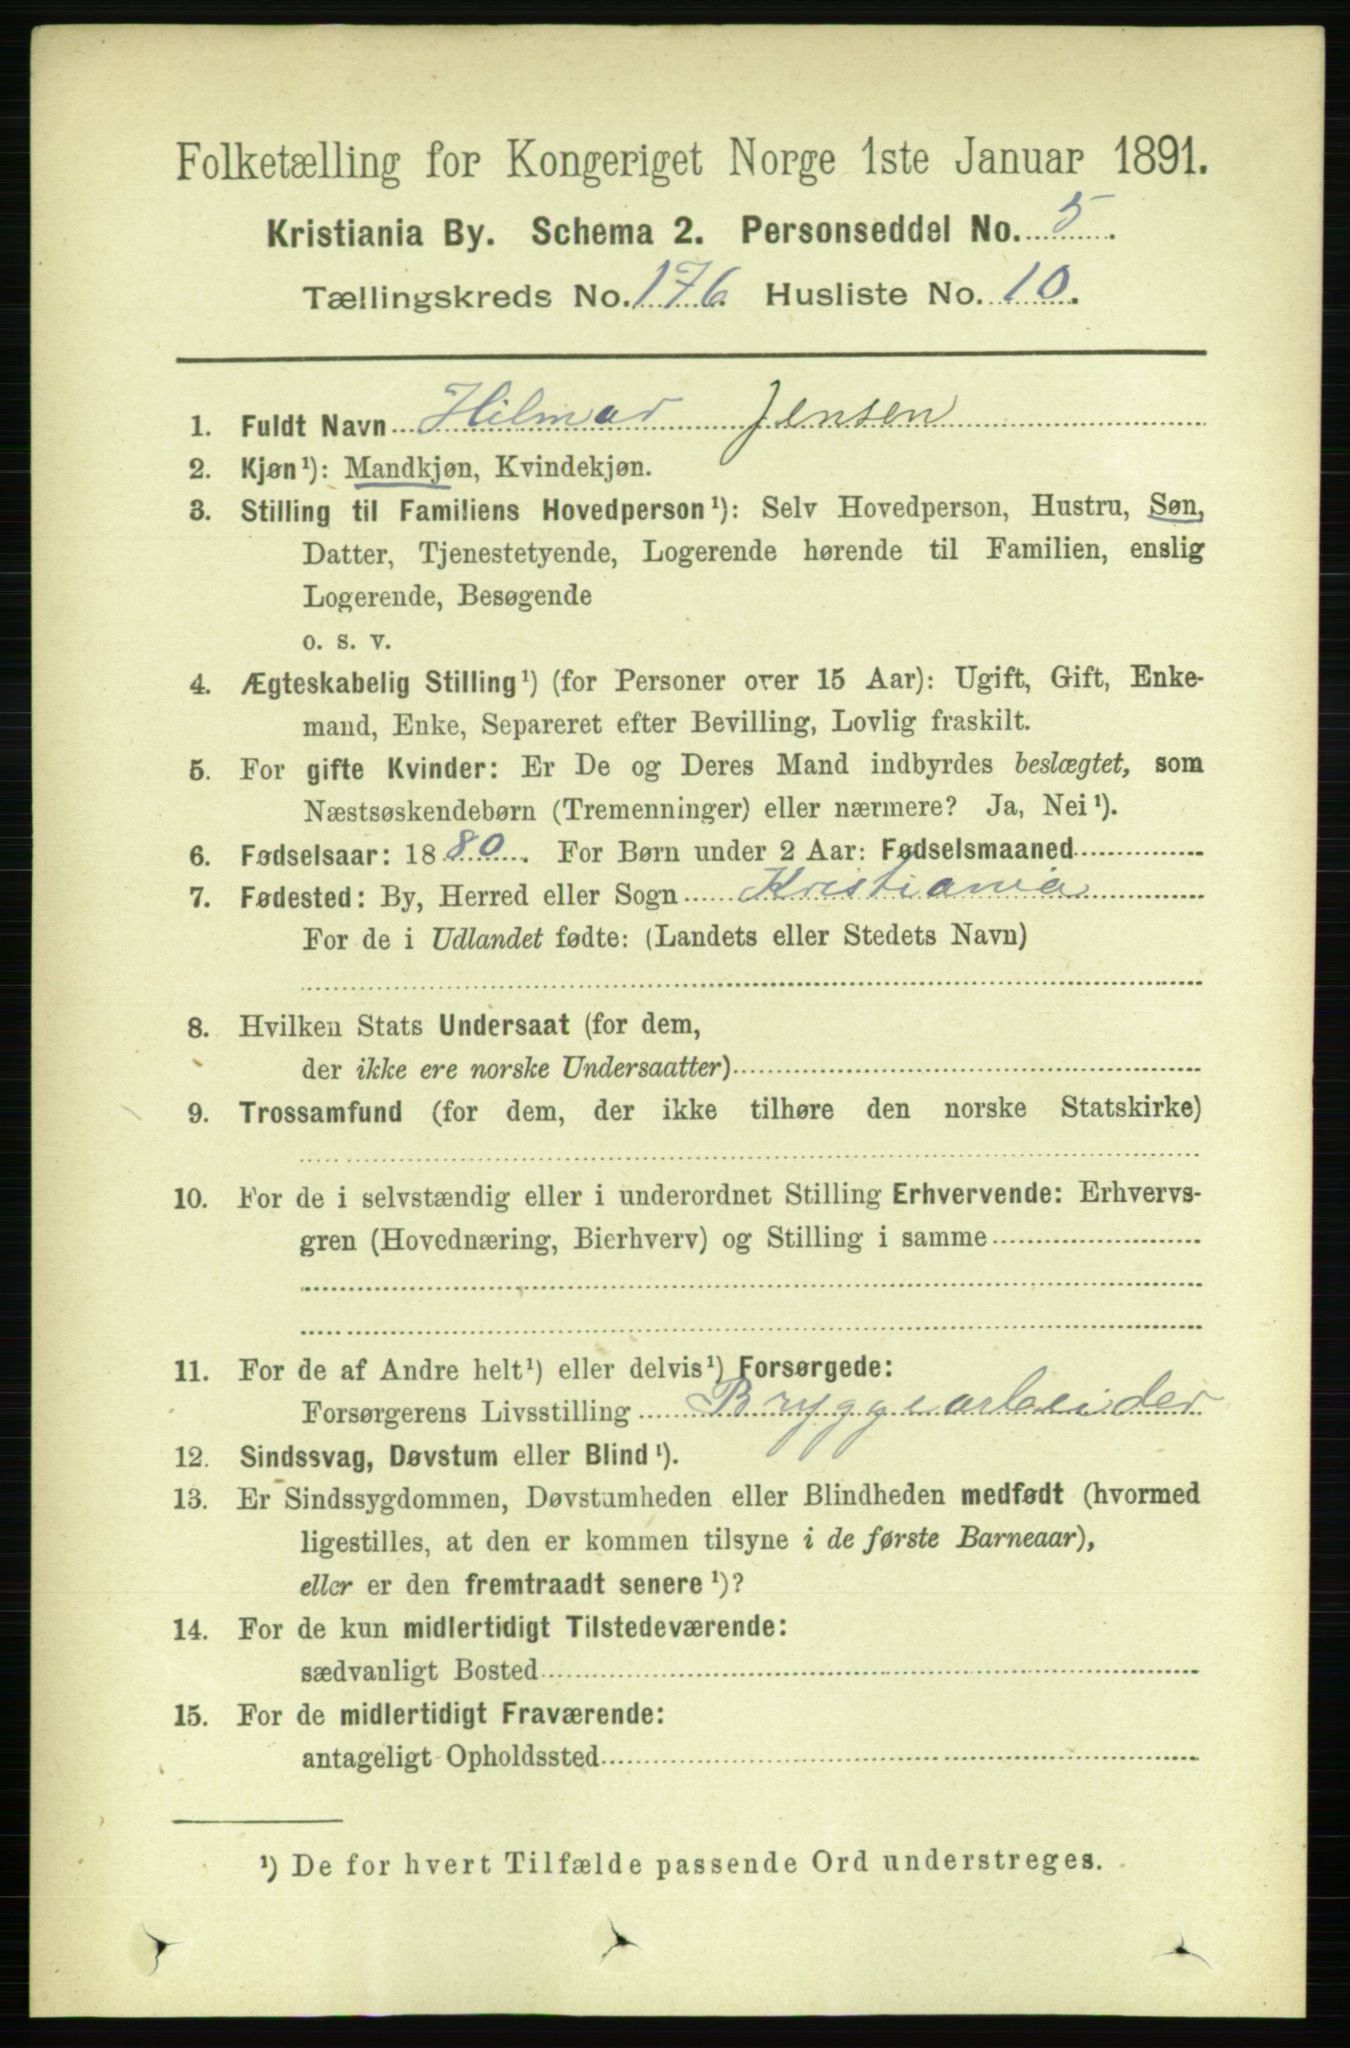 Folketælling for Kongeriget Norge 1ste Januar 1891.
Kristiania By. Schema 2. Personseddel No. 5.
Tællingskreds No. 176 Husliste No. 10.
1. Fuldt Navn Hilmar Jensen
2. Kjøn¹): Mandkjøn, Kvindekjøn.
3. Stilling til Familiens Hovedperson¹): Selv Hovedperson, Hustru, Søn,
Datter, Tjenestetyende, Logerende hørende til Familien, enslig
Logerende, Besøgende
o. s. v.
4. Ægteskabelig Stilling¹) (for Personer over 15 Aar): Ugift, Gift, Enke-
mand, Enke, Separeret efter Bevilling, Lovlig fraskilt.
5. For gifte Kvinder: Er De og Deres Mand indbyrdes beslægtet, som
Næstsøskendebørn (Tremenninger) eller nærmere? Ja, Nei¹).
6. Fødselsaar: 1880. For Børn under 2 Aar: Fødselsmaaned
7. Fødested: By, Herred eller Sogn Kristiania
For de i Udlandet fødte: (Landets eller Stedets Navn)
8. Hvilken Stats Undersaat (for dem,
der ikke ere norske Undersaatter)
9. Trossamfund (for dem, der ikke tilhøre den norske Statskirke)
10. For de i selvstændig eller i underordnet Stilling Erhvervende: Erhvervs-
gren (Hovednæring, Bierhverv) og Stilling i samme
11. For de af Andre helt¹) eller delvis¹) Forsørgede:
Forsørgerens Livsstilling Bryggearbeider
12. Sindssvag, Døvstum eller Blind¹).
13. Er Sindssygdommen, Døvstumheden eller Blindheden medfødt (hvormed
ligestilles, at den er kommen tilsyne i de første Barneaar),
eller er den fremtraadt senere¹)?
14. For de kun midlertidigt Tilstedeværende:
sædvanligt Bosted
15. For de midlertidigt Fraværende:
antageligt Opholdssted
¹) De for hvert Tilfælde passende Ord understreges.